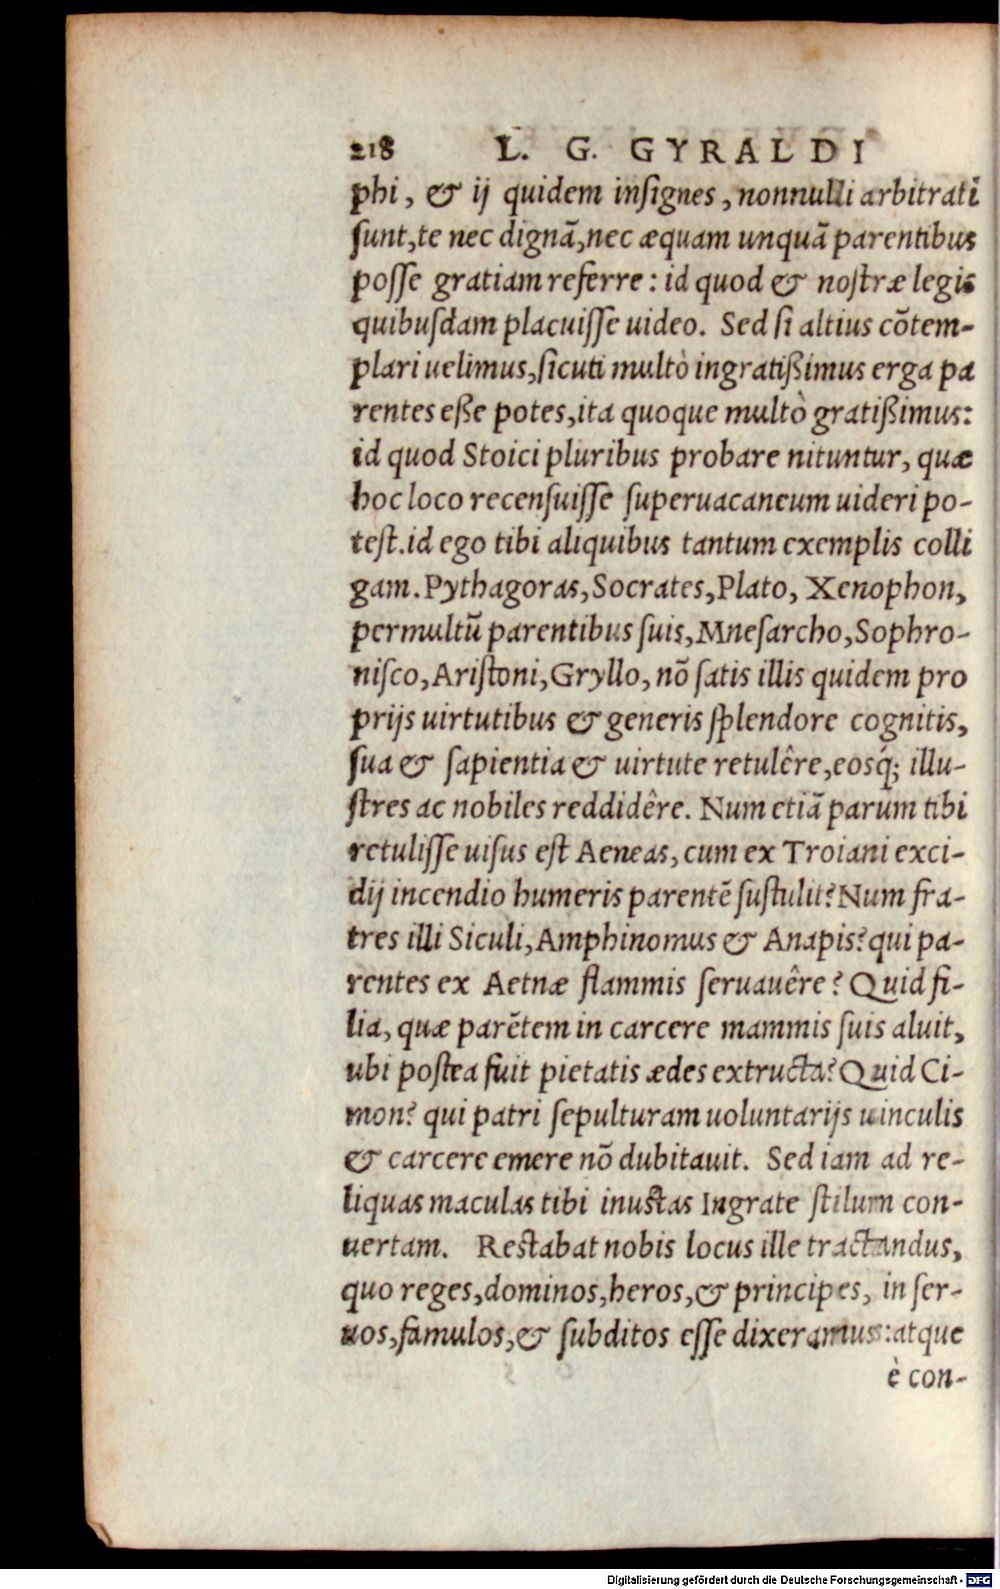 218 L. G. GYRALDI
phi, & ij quidem insignes, nonnulli arbitrati
sunt, te nec dignā, nec æquam unquā parentibus
posse gratiam referre: id quod & nostræ legis
quibusdam placuisse uideo. Sed si altius cōtem-
plari uelimus, sicuti multò ingratißimus erga pa
rentes eße potes, ita quoque multò gratißimus:
id quod Stoici pluribus probare nituntur, quæ
hoc loco recensuisse superuacaneum uideri po-
test. id ego tibi aliquibus tantum exemplis colli
gam. Pythagoras, Socrates, Plato, Xenophon,
permultū parentibus suis, Mnesarcho, Sophro-
nisco, Aristoni, Gryllo, nō satis illis quidem pro
prijs uirtutibus & generis splendore cognitis,
sua & sapientia & uirtute retulêre, eosq́; illu-
stres ac nobiles reddidêre. Num etiā parum tibi
retulisse uisus est Aeneas, cum ex Troiani exci-
dij incendio humeris parentē sustulit? Num fra-
tres illi Siculi, Amphinomus & Anapis? qui pa-
rentes ex Aetnæ flammis seruauêre? Quid fi-
lia, quæ parētem in carcere mammis suis aluit,
ubi postea fuit pietatis ædes extructa? Quid Ci-
mon? qui patri sepulturam uoluntarijs uinculis
& carcere emere nō dubitauit. Sed iam ad re-
liquas maculas tibi inustas Ingrate stilum con-
uertam. Restabat nobis locus ille tractandus,
quo reges, dominos, heros, & principes, in ser-
uos, famulos, & subditos esse dixeramus: atque
è con-
Digitalisierung gefördert durch die Deutsche Forschungsgemeinschaft - DFG